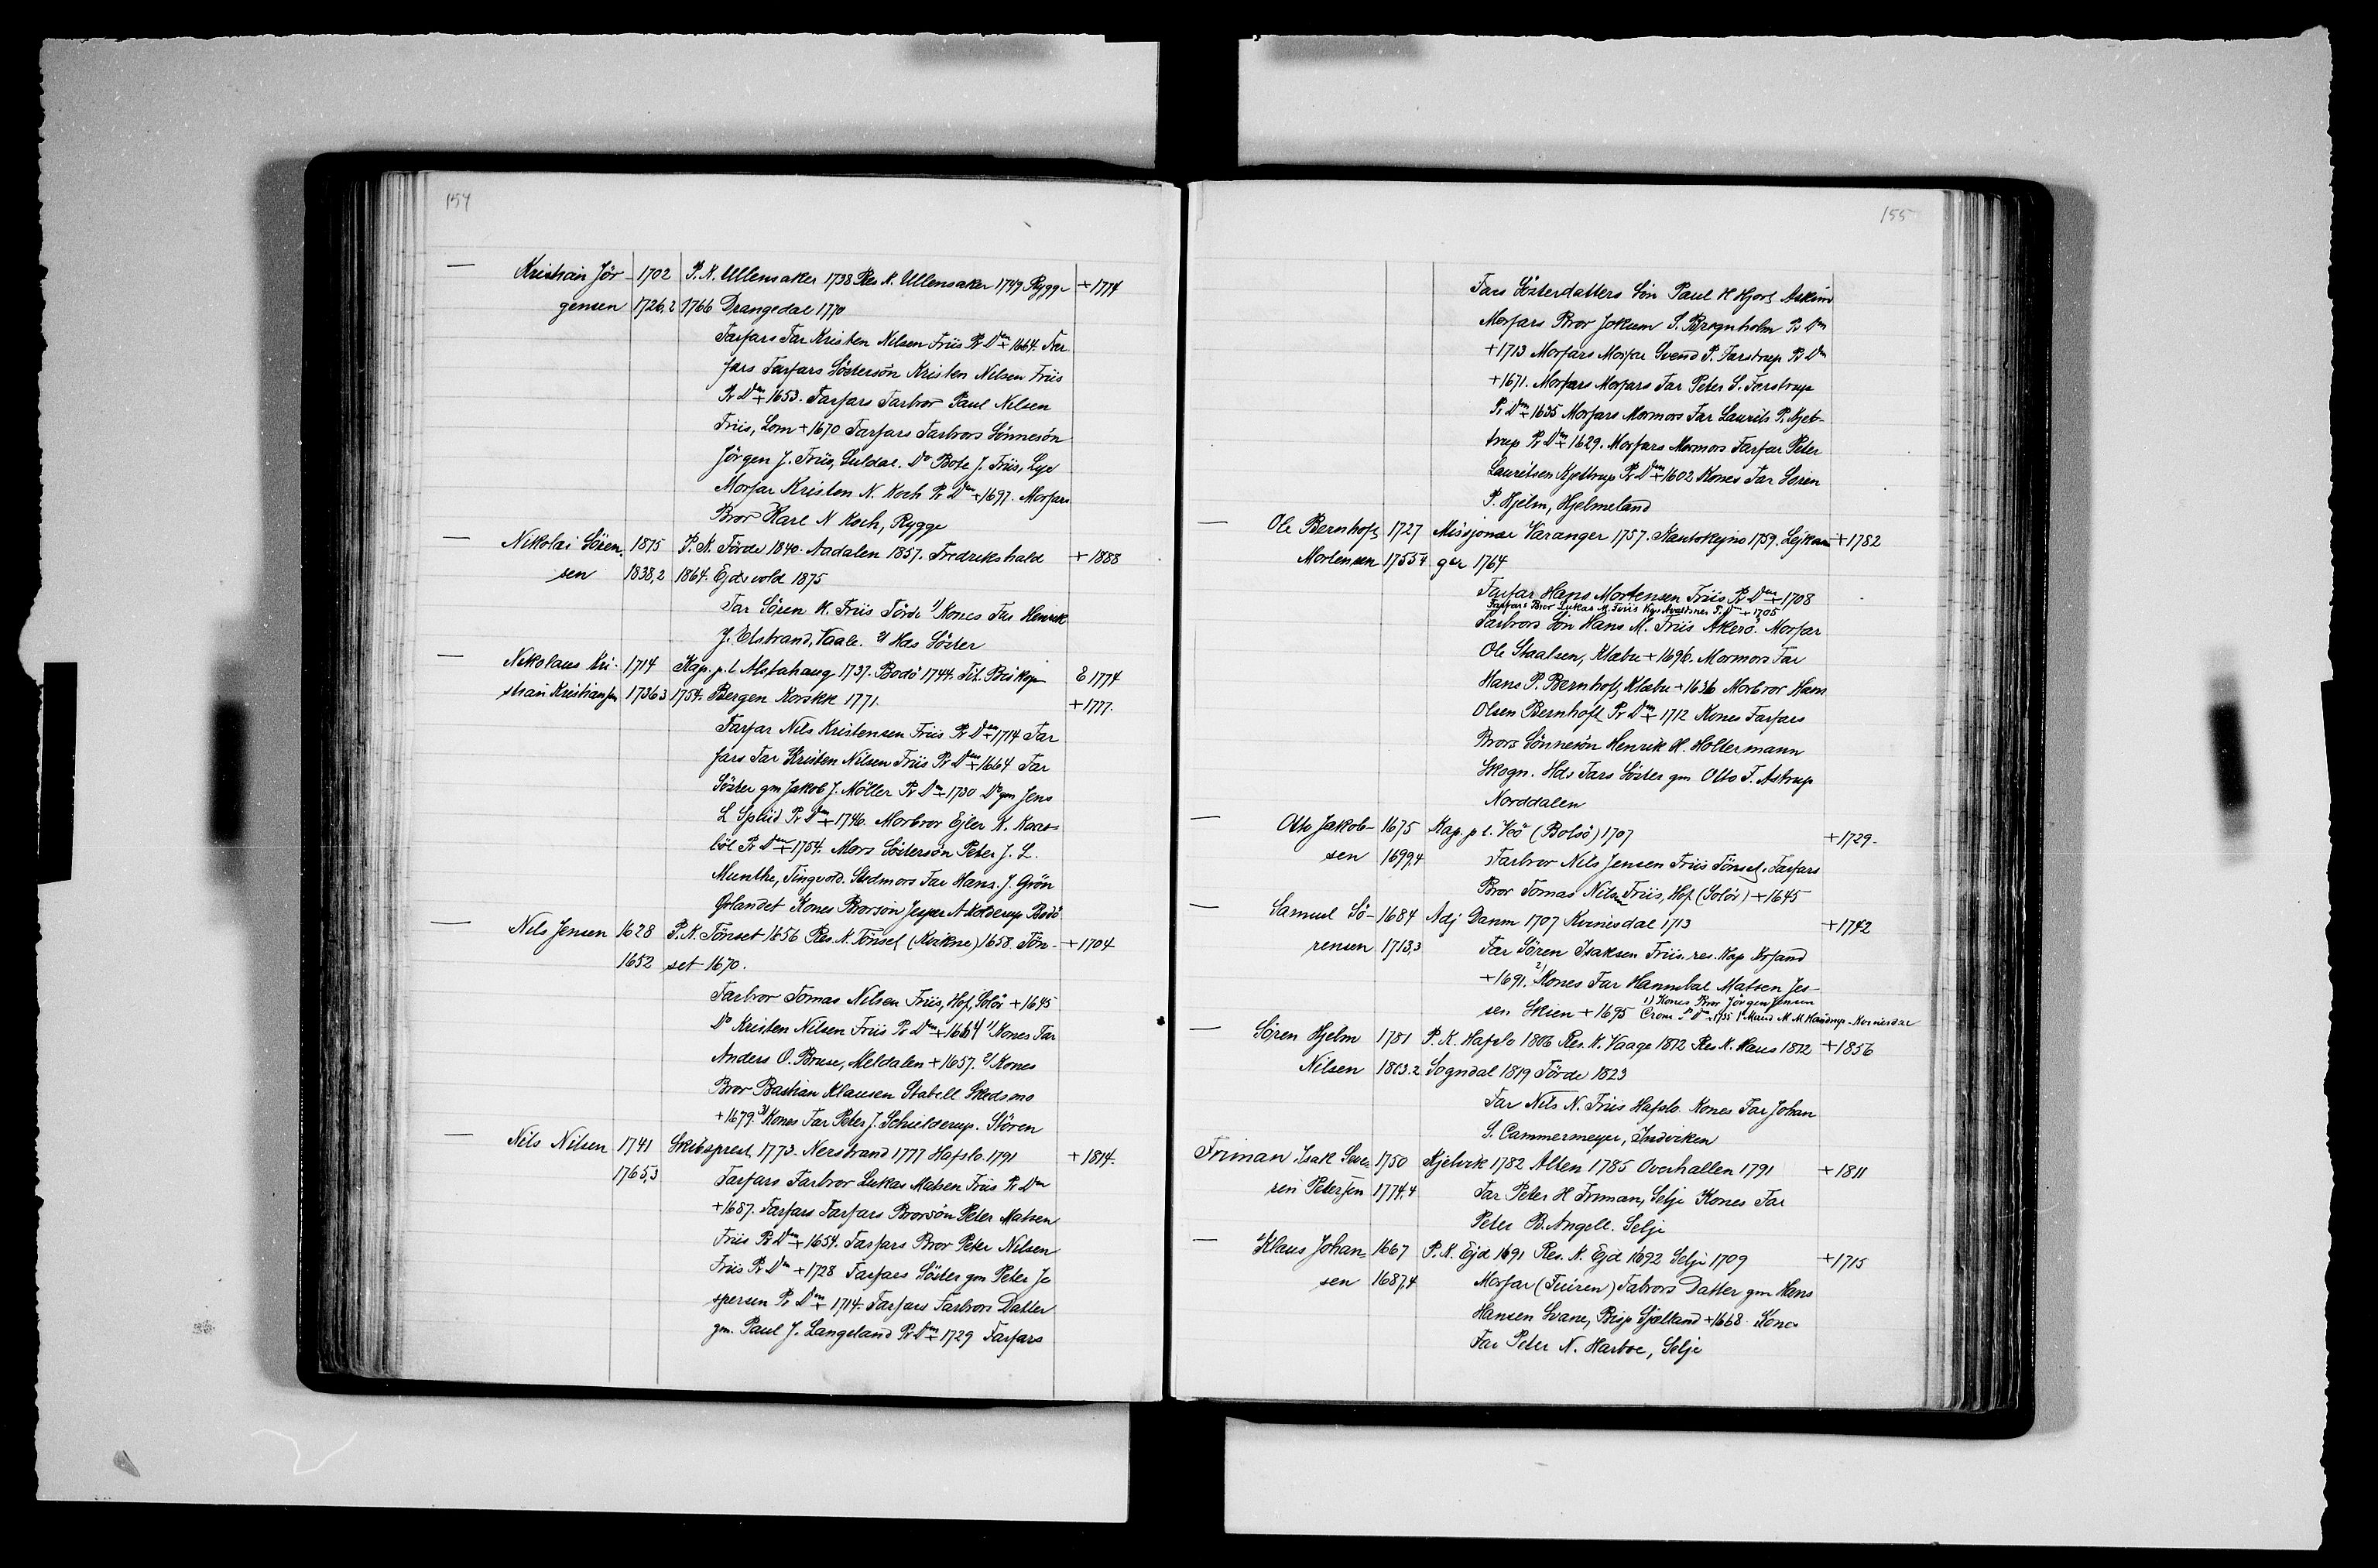 154
— Kristian Jör- 1702 P.K. Ullensaker 1738 Res K. Ullensaker 1749 Rygge +1774
gensen 1726,2 1766 Drangedal 1770
Farfars Far Kristen Nilsen Friis Pr Dm +1664. Far
fars Farfars Söstersön Kristen Nilsen Friis
Pr Dm + 1653. Farfars Farbror Paul Nilsen
Friis, Lom +1670 Farfars Farbrors Sönnesön
Jörgen J. Friis, Suldal. Do Bote J. Friis, Lye
Morfar Kristen N. Koch Pr Dm +1697. Morfars
Bror Karl N Koch, Rygge
— Nikolai Sören- 1815 P.K. Förde 1840. Aadalen 1857. Fredrikshald + 1888
sen 1838,2 1864. Ejdsvold 1875
Far Sören K. Friis Förde 1) Kones Far Henrik
J. Elstrand, Vaale. 2) Hds Söster
— Nikolaus Kri- 1714 Kap. p. l. Alstahaug 1737. Bodö 1744. Tit. Biskop E 1774
stian Kristiansen 1736,3 1754. Bergen Korskk 1771. +1777.
Farfar Nils Kristensen Friis Pr Dm +1714 Far
fars Far Kristen Nilsen Friis Pr Dm +1664 Far
Söster gm Jakob J. Möller Pr Dm +1730 Do gm Jens
L Splid Pr Dm +1746. Morbror Ejler K. Kaas-
böl Pr Dm +1754. Mors Söstersön Peter J. L.
Munthe, Tingvold. Stedmors Far Hans J. Grön
Örlandet Kones Brorsön Jesper A Kolderup Bodö
— Nils Jensen 1628 P.K. Tönset 1656 Res. K. Tönset (Kvikne) 1658. Tön- +1704
1652 set 1670.
Farbror Tomas Nilsen Friis, Hof, Solör +1645
Do Kristen Nilsen Friis Pr Dm +1664 1) Kones Far
Anders O. Bruse, Meldalen +1657. 2) Kones
Bror Bastian Klausen Stabell Skedsmo
+1679. 3) Kones Far Peter J. Schielderup. Stören
— Nils Nilsen 1741 Skibsprest 1773. Nerstrand 1777 Hafslo 1791 + 1814.
1765,3 Farfars Farbror Lukas Matsen Friis Pr Dm
+1687. Farfars Farfars Brorsön Peter Matsen
Friis Pr Dm +1654. Farfars Bror Peter Nilsen
Friis Pr Dm +1728 Farfars Söster gm Peter Je
spersen Pr Dm + 1714. Farfars Farbrors Datter
gm. Paul J. Langeland Pr Dm + 1729 Farfars
155
Fars Sösterdatters Sön Paul H Hjort Askim
Morfars Bror Jokum S. Brøgnholm Pr Dm
+1713 Morfars Morfar Svend P. Farstrup Pr Dm
+1671. Morfars Morfars Far Peter S. Farstrup
Pr Dm +1635 Morfars Mormors Far Laurits P. Kjet-
trup Pr Dm + 1629. Morfars Mormors Farfar Peter
Lauritsen Kjettrup Pr Dm +1602 Kones Far Sören
P. Hjelm, Hjelmeland
— Ole Bernhoft 1727 Missjonær Varanger 1757. Kautokejno 1759. Lejkan +1782
Mortensen 1755,4 ger 1764
Farfar Hans Mortensen Friis Pr Dm +1708
Farfars Bror Lukas M. Friis Kap Avaldsnes Pr Dm +1705
Farbrors Sön Hans M. Friis Akerö. Morfar
Ole Staalsen, Klæbu +1696. Mormors Far
Hans P. Bernhoft, Klæbu +1636 Morbror Hans
Olsen Bernhoft Pr Dm + 1712 Kones Farfars
Brors Sönnesön Henrik H. Holtermann
Skogn. Hds Fars Söster gm Otto F. Astrup
Norddalen
— Otto Jakob- 1675 Kap. p l. Veö (Bolsö) 1707 +1729.
sen 1699,4 Farbror Nils Jensen Friis Tönset. Farfars
Bror Tomas Nilsen Friis, Hof (Solör) +1645
— Samuel Sö- 1684 Adj Danm 1707 Kvinesdal 1713 +1742
rensen 1713,3 Far Sören Isaksen Friis res. Kap Krsand
+1691. 2) Kones Far Hannibal Matsen Jes-
sen Skien +1695 1) Kones Bror Jörgen Jensen
Crom Pr Dm +1735 1 Mand M. M. Haudrup-Kvinesdal
— Sören Hjelm 1781 P.K. Hafslo 1806 Res. K. Vaage 1812 Res K. Haus 1812 +1856
Nilsen 1803.2 Sogndal 1819 Förde 1823
Far Nils N. Friis Hafslo. Kones Far Johan
S. Cammermeyer, Indviken
Friman Isak Seve- 1750 Kjelvik 1782 Alten 1785 Overhallen 1791 + 1811
rin Petersen 1774,4 Far Peter H Friman, Selje Kones Far
Peter B. Angell. Selje
— Klaus Johan- 1667 P.K. Ejd 1691 Res. K. Ejd 1692 Selje 1709 +1715
sen 1687,4 Morfar (Fuiren) Fabrors Datter gm Hans
Hansen Svane, Bisp Sjælland +1668. Kones
Far Peter N. Harboe, Selje